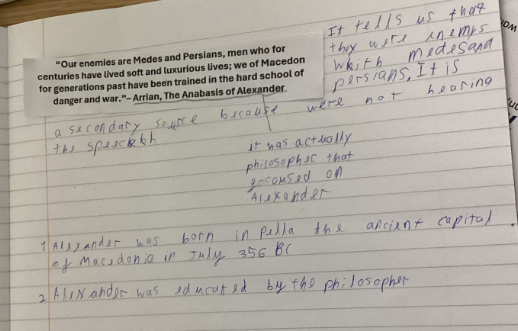 "Our enemies are Medes and Persians, men who for
centuries have lived soft and luxurious lives; we of Macedon
for generations past have been trained in the hard school of
danger and war."– Arrian, The Anabasis of Alexander.
It tells us that
they were enemys
whith medes and
persians. It is
a secondary source because were not hearing
the speeckbh
it was actually
philosopher that
focoused on
Alexander
1 Alexander was born in Pella the ancient capital
of Macedonia in July 356 BC
2 Alexander was educated by the philosopher